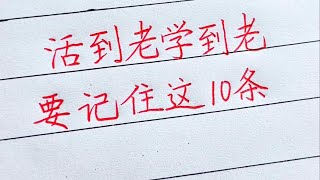 活到老学到老
要记住这10条